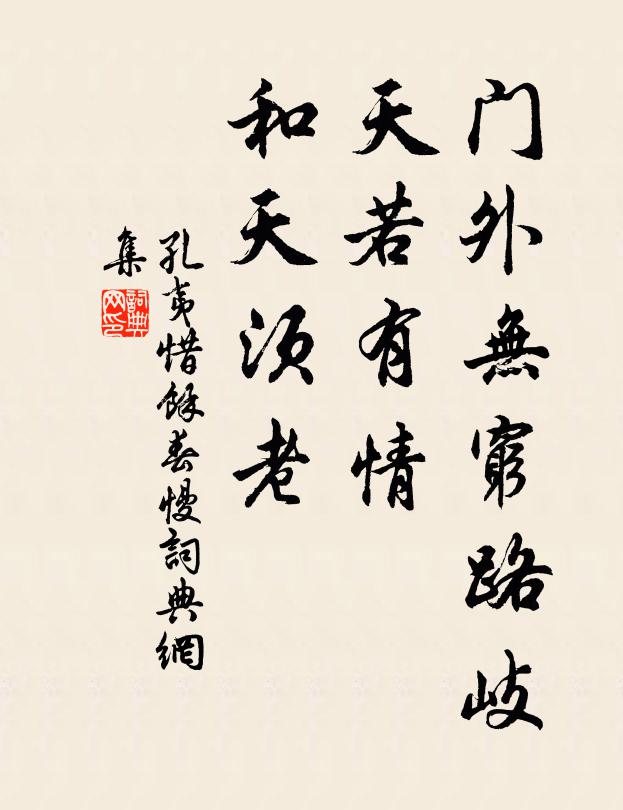 門外無窮路岐
天若有情
和天須老
孔夷惜餘春慢詞典網
集
詞典网印